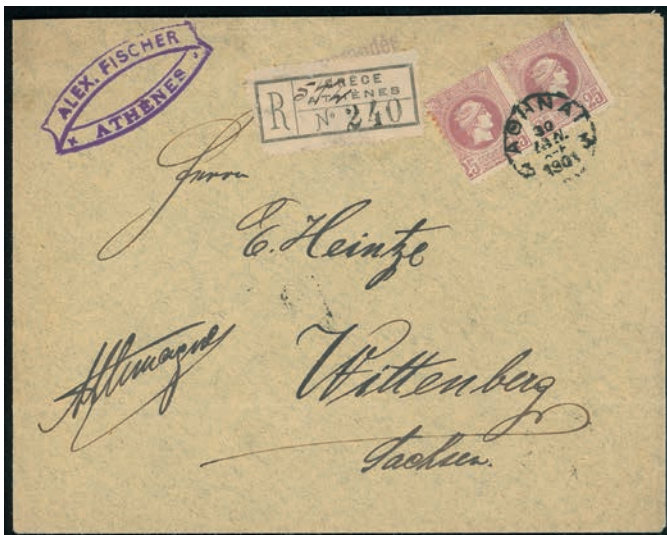 ALEX. FISCHER
ATHÈNES
GRÈCE
ATHÈNES
R
No 240
25
25
ΑΘΗΝΑΙ
30
ΙΑΝ.
1901
3
3
Herrn
E. Heintze
Allemagne
Wittenberg
Sachsen.